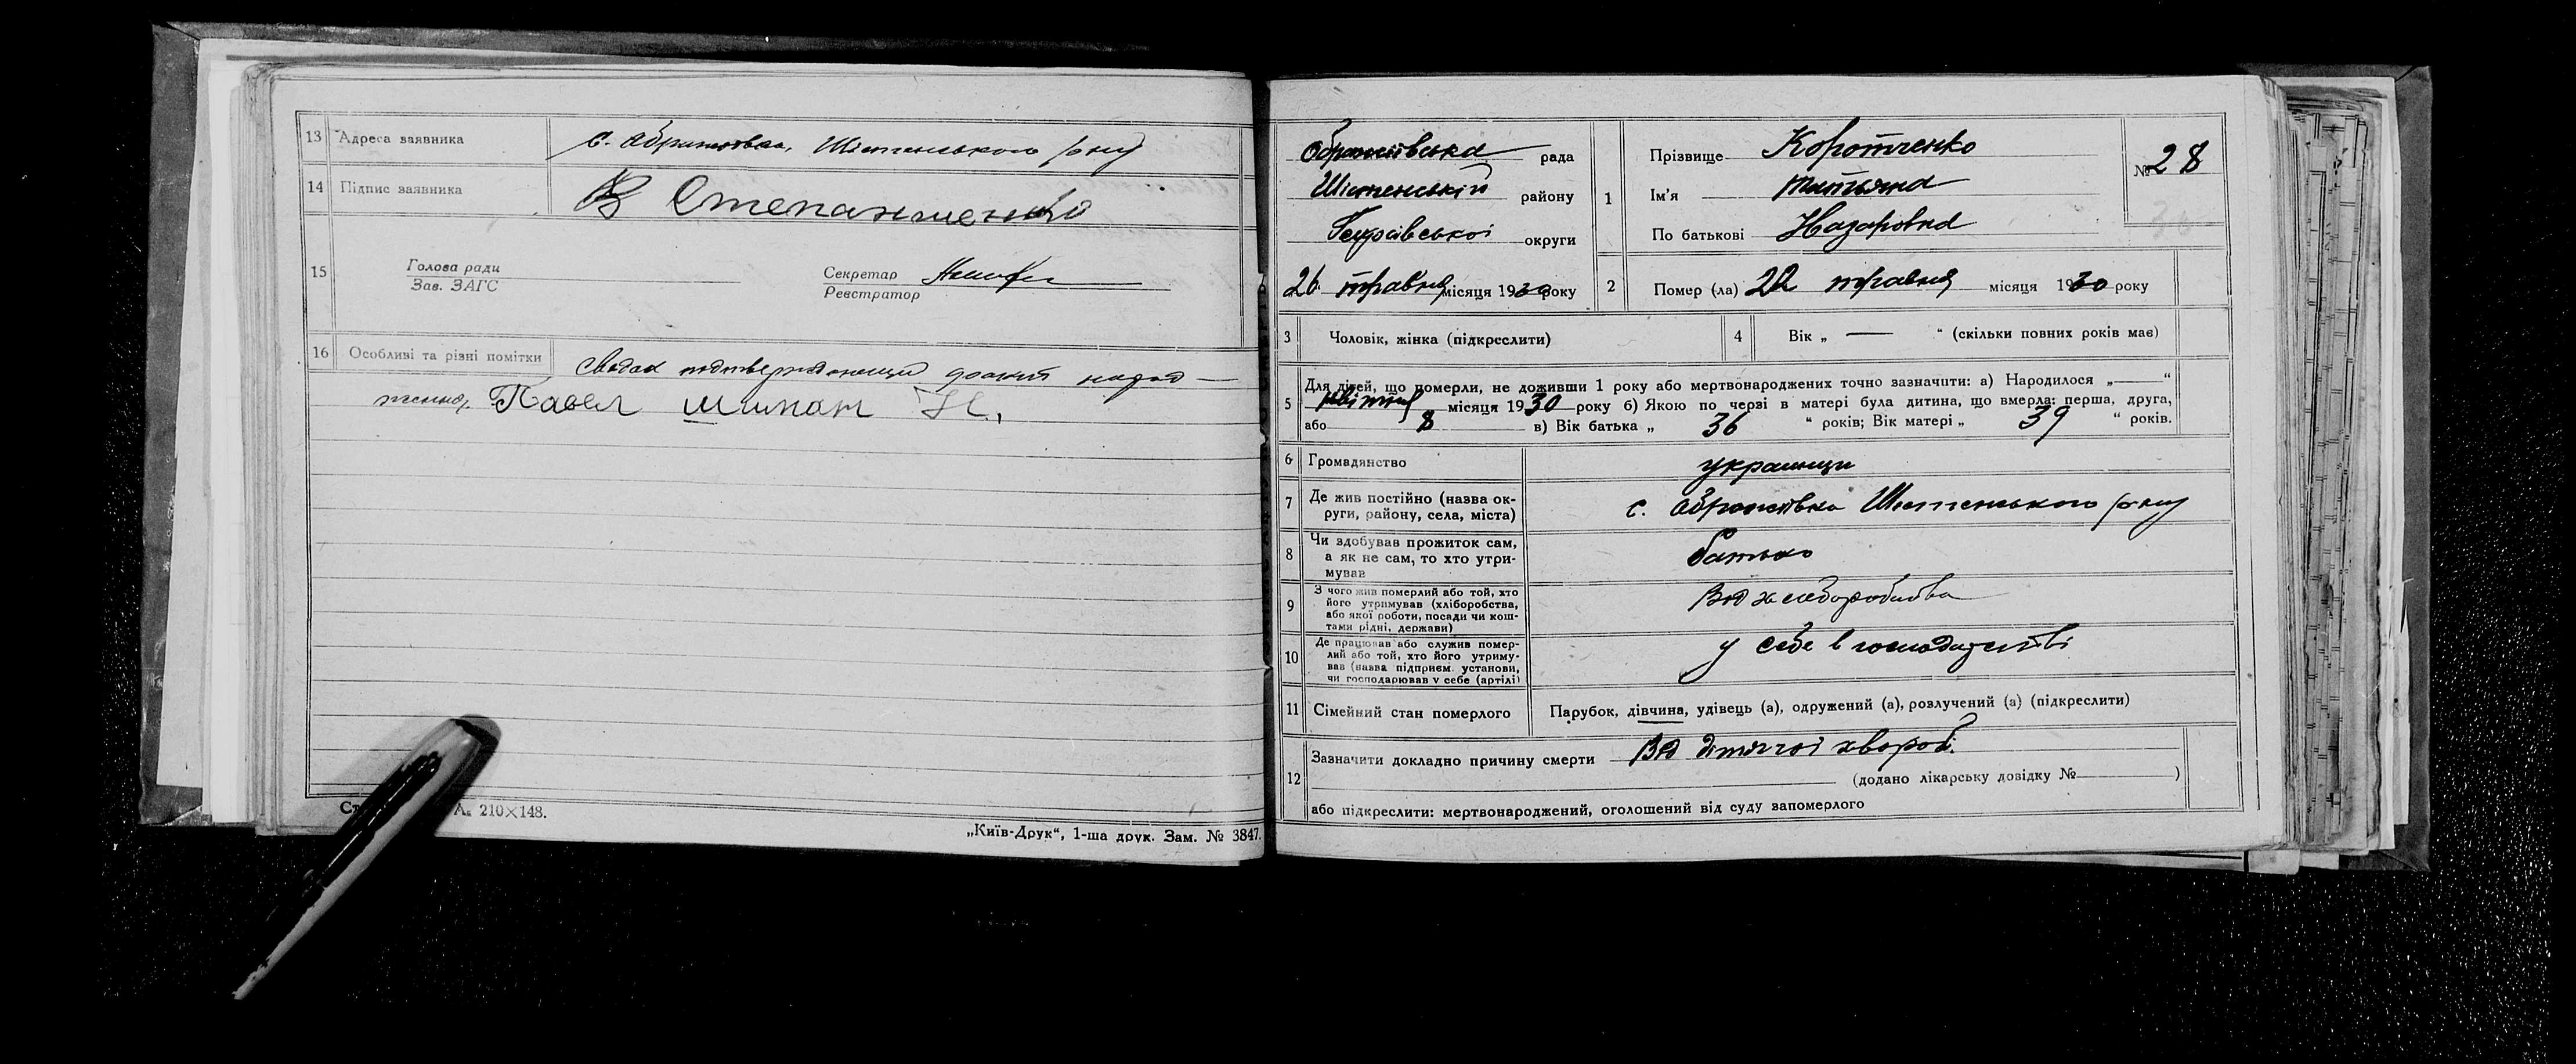 13 Адреса заявника с. Шістенського р-ну
14 Підпис заявника В Степаниченко
15 Голова ради
Зав. ЗАГС
Секретар
Реєстратор
16 Особливі та різні помітки
Павел Шипан Н.
А₅ 210×148.
„Київ-Друк“, 1-ша друк. Зам. № 3847.
рада
району
округи
26 травня місяця 1930 року
1 Прізвище Коротченко
Ім'я Татьяна
По батькові Назаровна
№ 28
2 Помер (ла) 22 травня місяця 1930 року
3 Чоловік, жінка (підкреслити)
4 Вік „ — “ (скільки повних років має)
5 Для дітей, що померли, не доживши 1 року або мертвонароджених точно зазначити: а) Народилося „ — “
квітня місяця 1930 року б) Якою по черзі в матері була дитина, що вмерла: перша, друга,
або 8 в) Вік батька „ 36 “ років; Вік матері „ 39 “ років.
6 Громадянство українци
7 Де жив постійно (назва ок-
руги, району, села, міста) с. Шістенського р-ну
8 Чи здобував прожиток сам,
а як не сам, то хто утри-
мував батько
9 З чого жив померлий або той, хто
його утримував (хліборобства,
або якої роботи, посади чи кош-
тами рідні, держави) Від хлеборобства
10 Де працював або служив помер-
лий або той, хто його утриму-
вав (назва підприєм. установи,
чи господарював у себе (артілі) у себе в господарстві
11 Сімейний стан померлого Парубок, дівчина, удівець (а), одружений (а), розлучений (а) (підкреслити)
12 Зазначити докладно причину смерти Від дитячої хвороб.
(додано лікарську довідку № — )
або підкреслити: мертвонароджений, оголошений від суду запомерлого